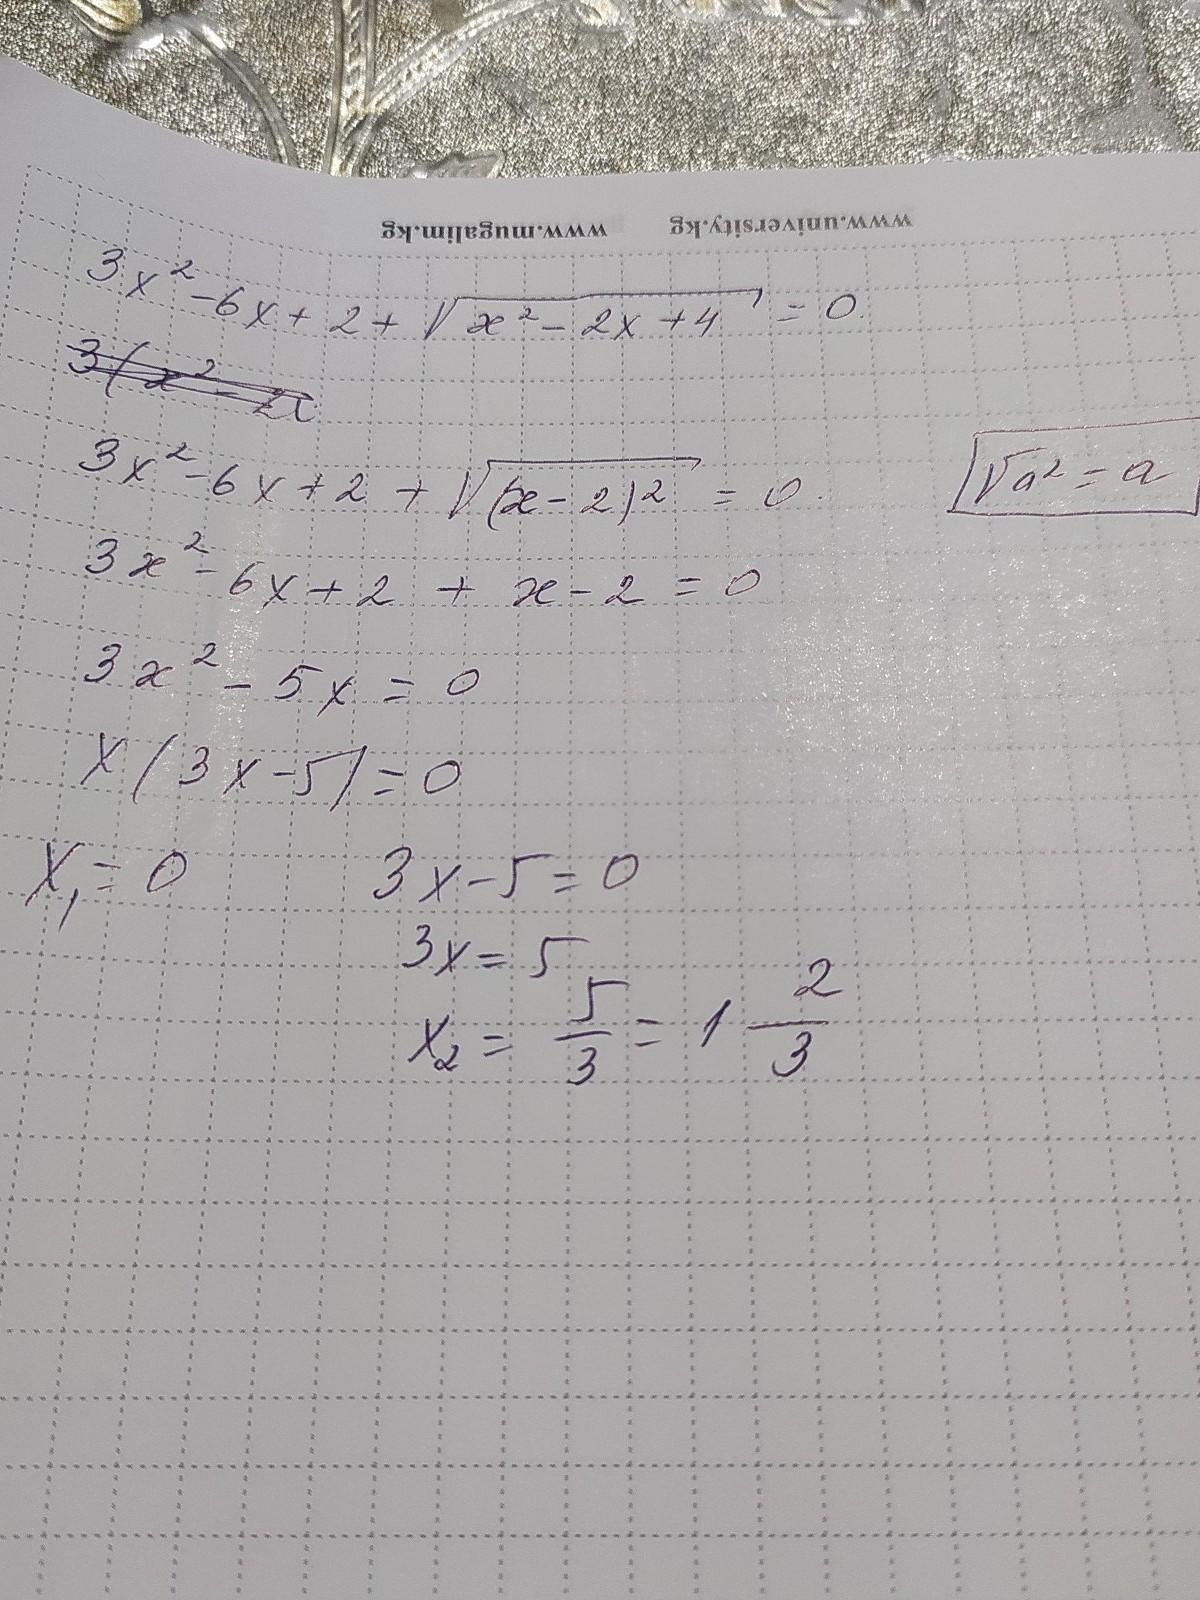 www.mugalim.kg www.university.kg
3x² - 6x + 2 + √(x² - 2x + 4) = 0.
3(x² - 2x
3x² - 6x + 2 + √((x - 2)²) = 0. √a² = a
3x² - 6x + 2 + x - 2 = 0
3x² - 5x = 0
x(3x - 5) = 0
x₁ = 0 3x - 5 = 0
3x = 5
x₂ = 5/3 = 1 2/3